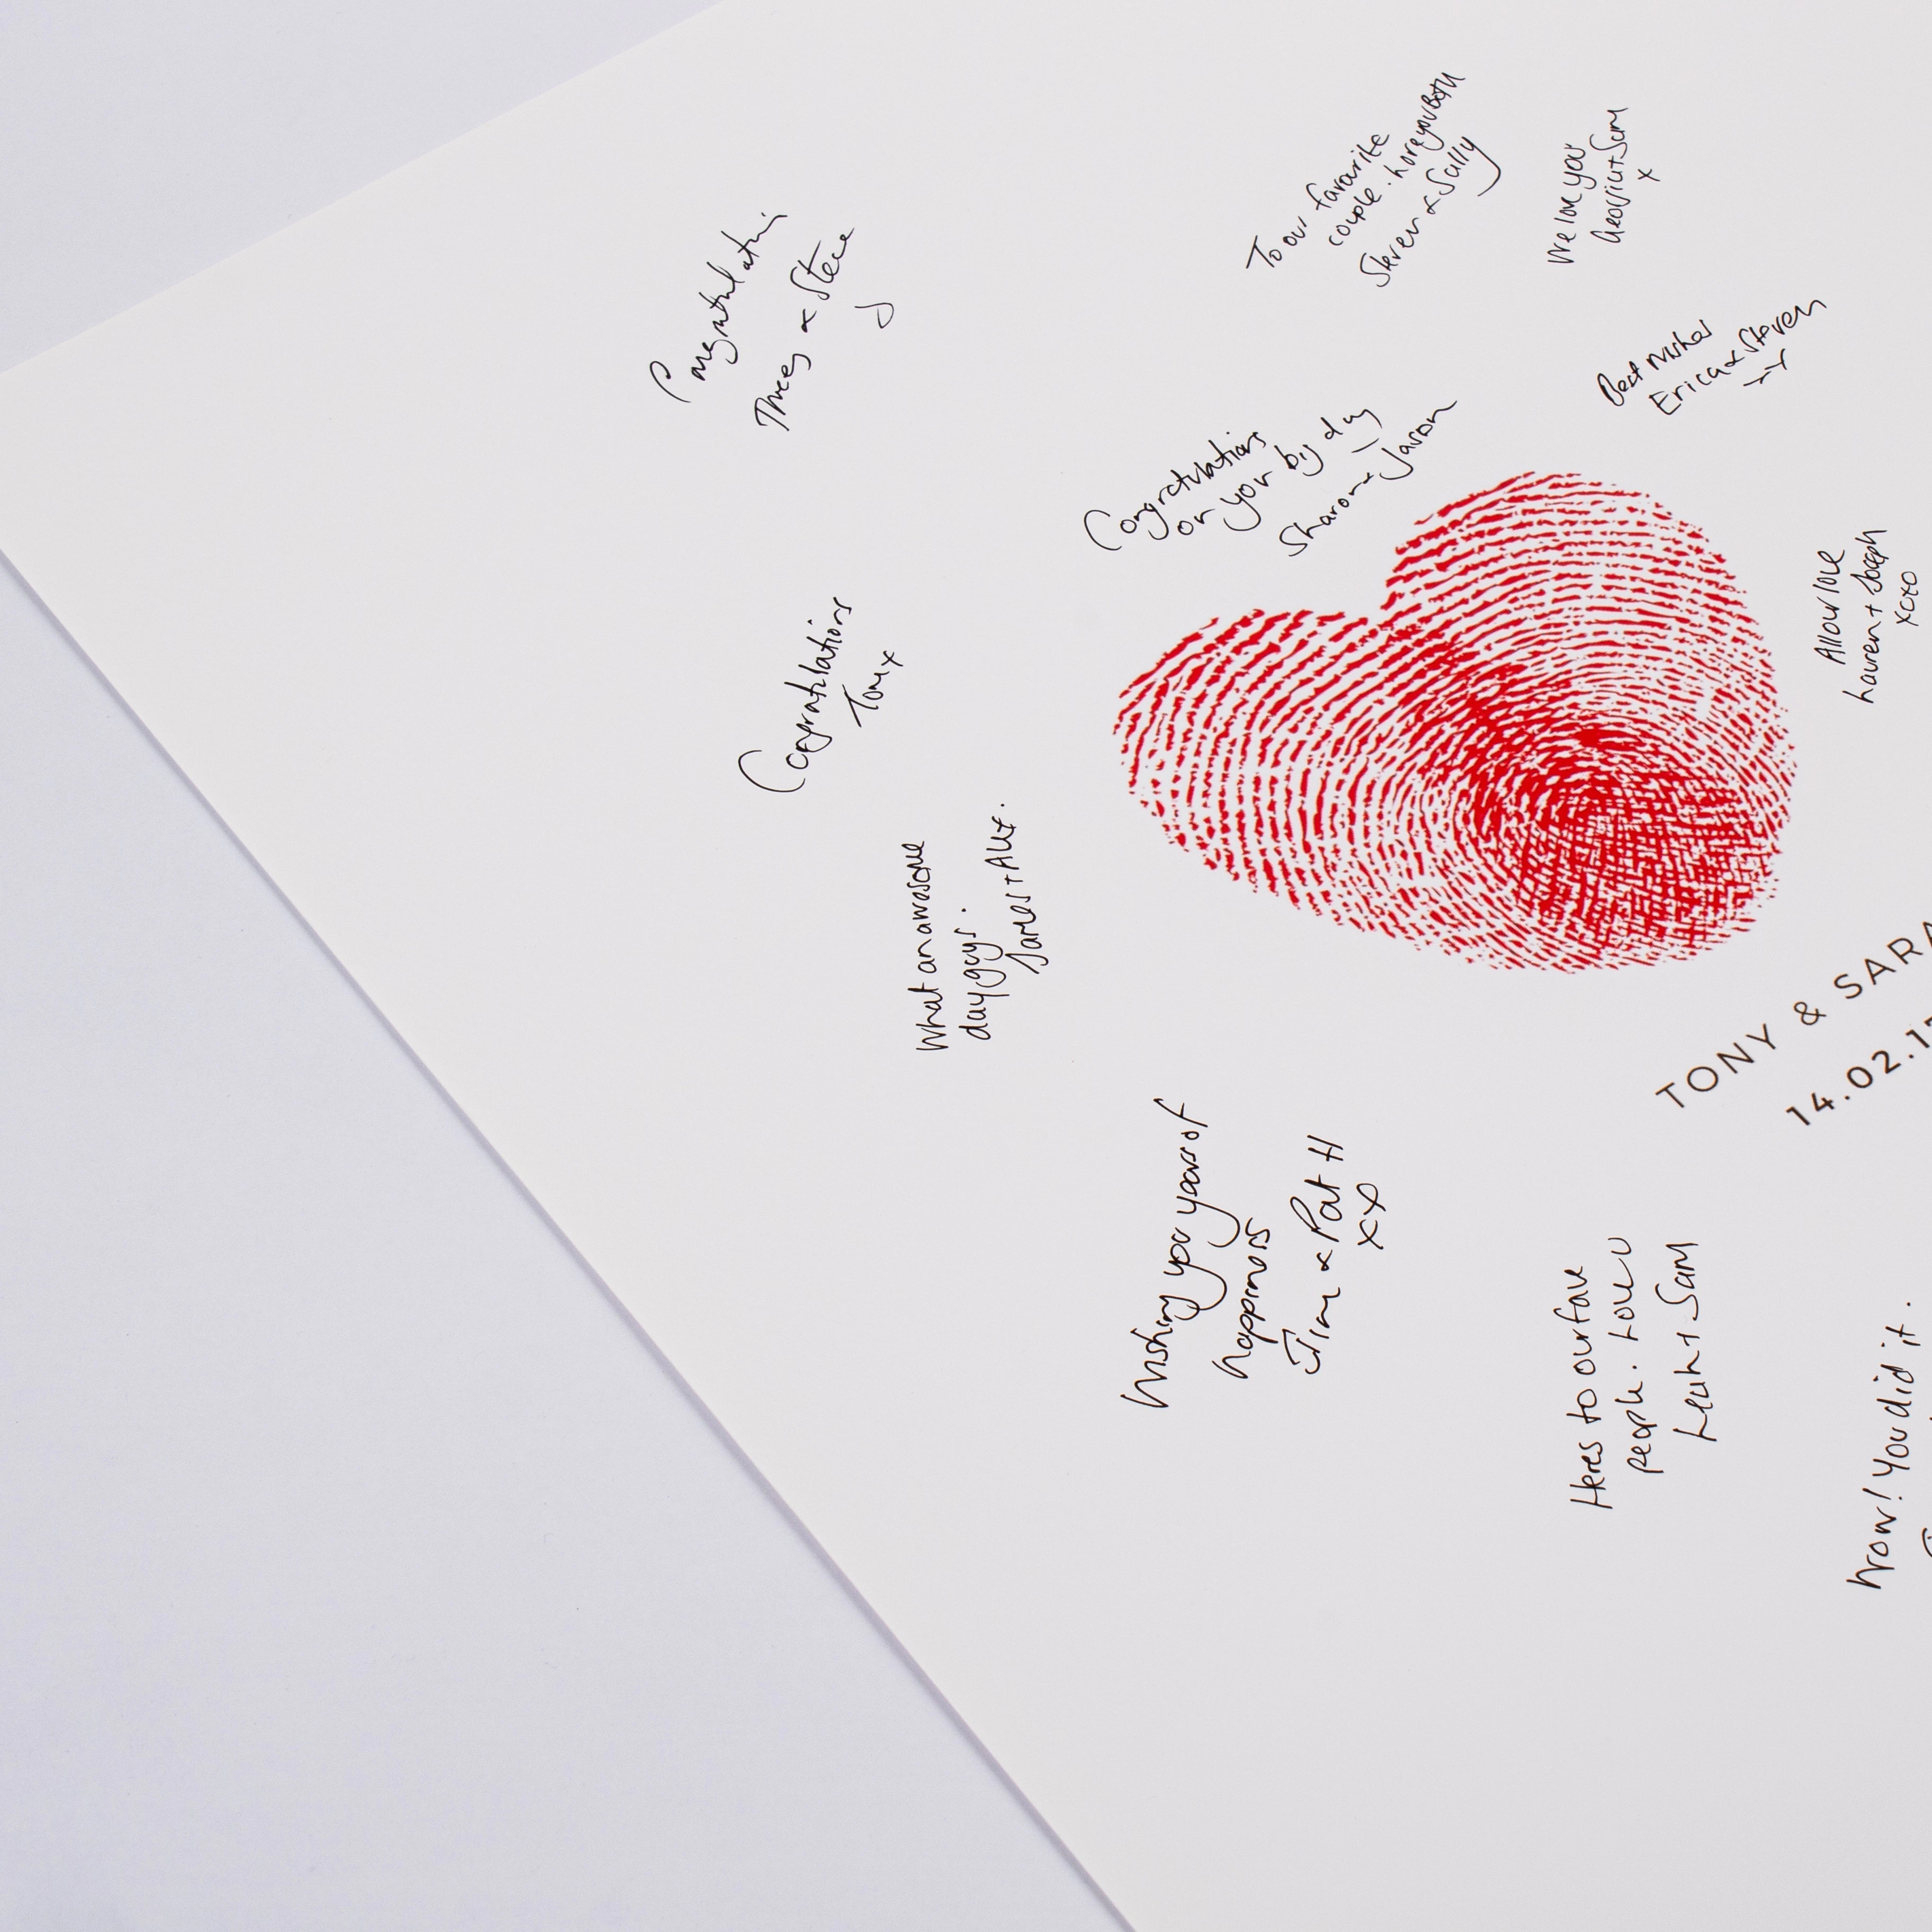 To our favourite
couple. Love you Both
Steven & Sally
We love you
Georgia + Sam
x
Congratulations
& Steve
Best wishes
Erica & Steven
xx
Congratulations
on your big day
Sharon & Jason
All our love
Lauren + Joseph
xoxo
Congratulations
Tom x
What an awesome
day guys.
James + Alex.
TONY & SARA
14.02.17
Wishing you years of
happiness
Jim & Pat H
xx
Heres to our fave
people. Love u
Leah + Sam
Wow! You did it.